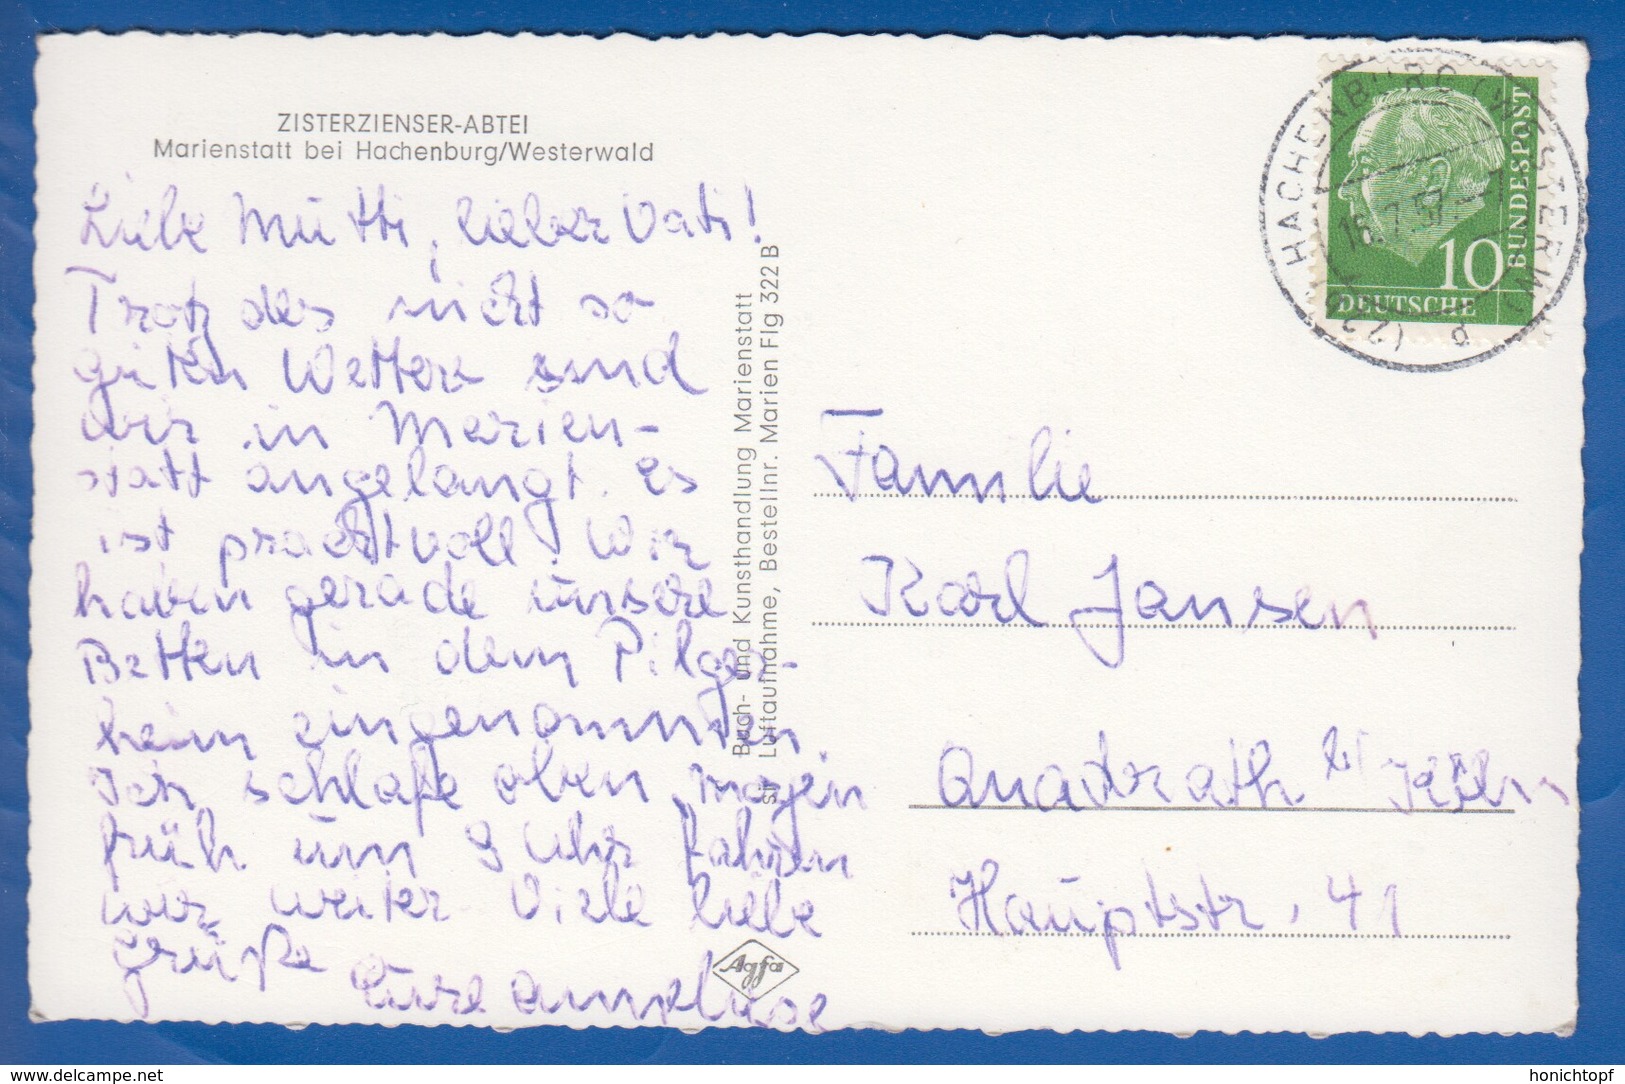 ZISTERZIENSER-ABTEI
Marienstatt bei Hachenburg/Westerwald
Liebe Mutti, lieber Vati!
Trotz des nicht so
guten Wetters sind
wir in Marien-
statt angelangt. Es
ist prachtvoll. Wir
haben gerade unsere
Betten in dem Pilger-
heim eingenommen.
Ich schlafe oben, morgen
früh um 9 Uhr fahren
wir weiter. Viele liebe
Grüße
Eure Anneliese
Buch- und Kunsthandlung Marienstatt
Luftaufnahme, Bestellnr. Marien Flg 322 B
Agfa
HACHENBURG (WESTERW)
16.7.57.-7
DEUTSCHE
BUNDESPOST
10
Familie
Karl Jansen
Quadrath b/ Köln
Hauptstr. 41
www.delcampe.net
honichtopf